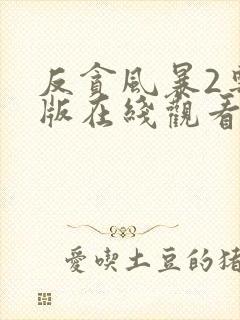 反貪風暴2
版在綫觀看
愛喫土豆的猪